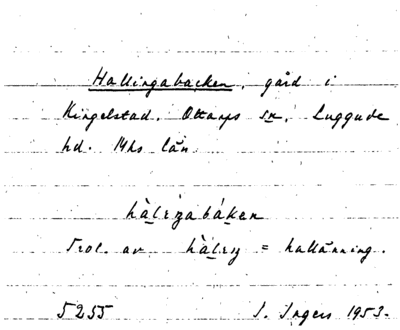 Hallingabacken, gård i
Kingelstad. Ottarps sn, Luggude
hd. Mhs län
hàlıŋabákən
Trol. av hàlıŋ = hallänning.
5255 I. Ingers 1953.